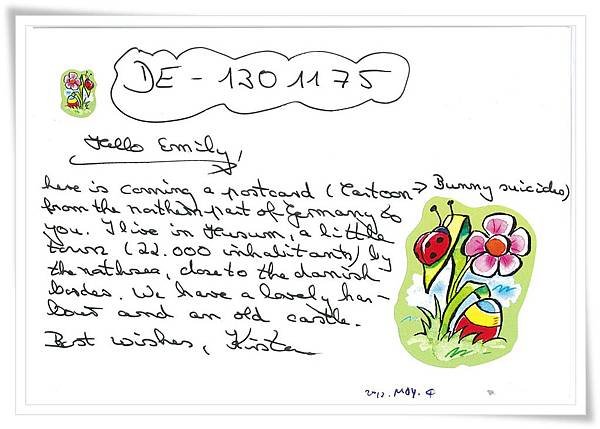 DE - 1301175
Hello Emily,
here is coming a postcard (Cartoon → Bunny suicides)
from the northern part of Germany to
you. I live in Husum, a little
town (22.000 inhabitants) by
the nothsea, close to the danish
border. We have a lovely har-
bour and an old castle.
Best wishes, Kirsten
2012. MAY. 4